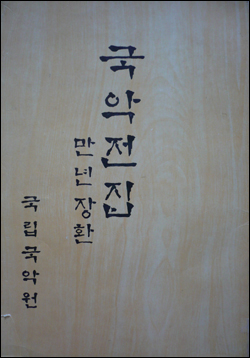 국악전집
만년장환
국립국악원